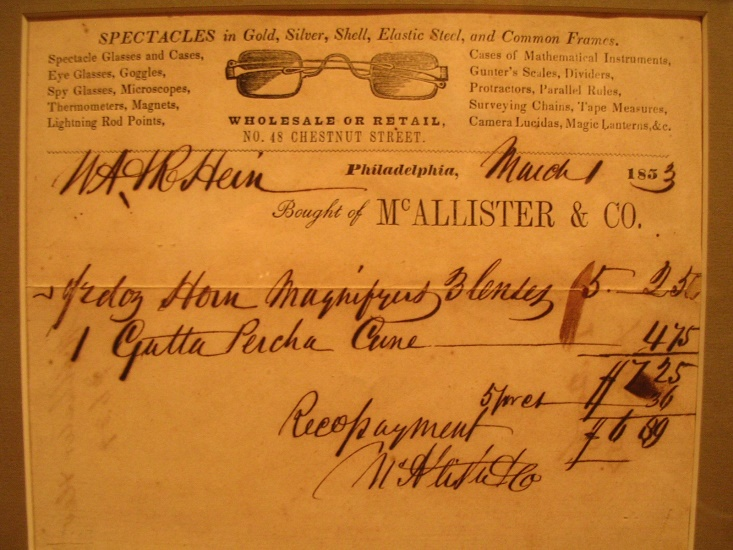 SPECTACLES in Gold, Silver, Shell, Elastic Steel, and Common Frames.
Spectacle Glasses and Cases,
Eye Glasses, Goggles,
Spy Glasses, Microscopes,
Thermometers, Magnets,
Lightning Rod Points,
WHOLESALE OR RETAIL,
NO. 48 CHESTNUT STREET.
Cases of Mathematical Instruments,
Gunter's Scales, Dividers,
Protractors, Parallel Rules,
Surveying Chains, Tape Measures,
Camera Lucidas, Magic Lanterns, &c.
Hein Philadelphia, March 1 1853
Bought of McALLISTER & CO.
doz Horn Magnifyers 3 lenses 5. 25
1 Gutta Percha Cane 4 75
$7 25
5 prct 36
Rec payment $6 89
McAlister & Co